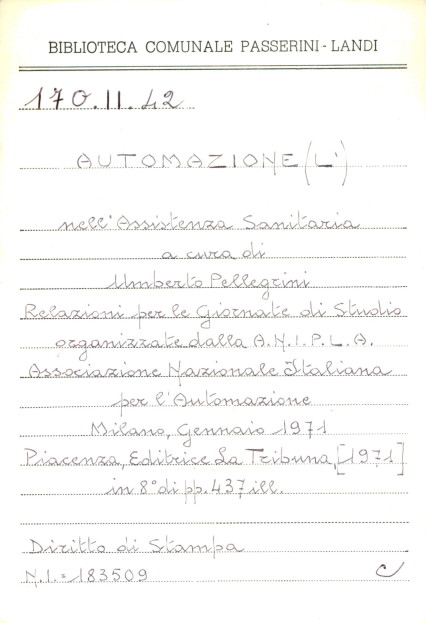 BIBLIOTECA COMUNALE PASSERINI - LANDI
170.II.42
AUTOMAZIONE (L')
nell'Assistenza Sanitaria
a cura di
Umberto Pellegrini
Relazioni per le Giornate di Studio
organizzate dalla A.N.I.P.L.A.
Associazione Nazionale Italiana
per l'Automazione
Milano, Gennaio 1971
Piacenza, Editrice La Tribuna, [1971]
in 8° di pp. 437 ill.
Diritto di Stampa
N.I. = 183509 C